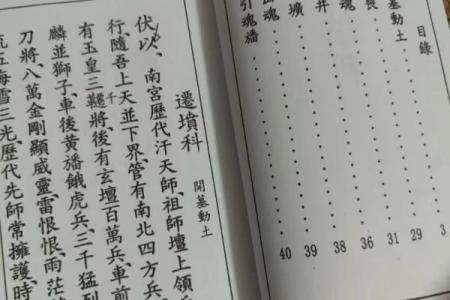 目錄
開墓動土 3
29
31
魂 36
井 38
壙 39
魂
引魂潘 40
遷墳科
開墓動土
伏以、南宮歷代汗天師、祖師壇上領兵
行、隨吾上天並下界、管有南北四方兵、
有玉皇三千韆將、後有玄壇百萬兵、車前
麟並獅子、車後黃潘餓虎兵、三千猛烈
刀將、八萬金剛顯威靈、雷恨恨、雨茫
海雪三光、歷代先師常擁護、時